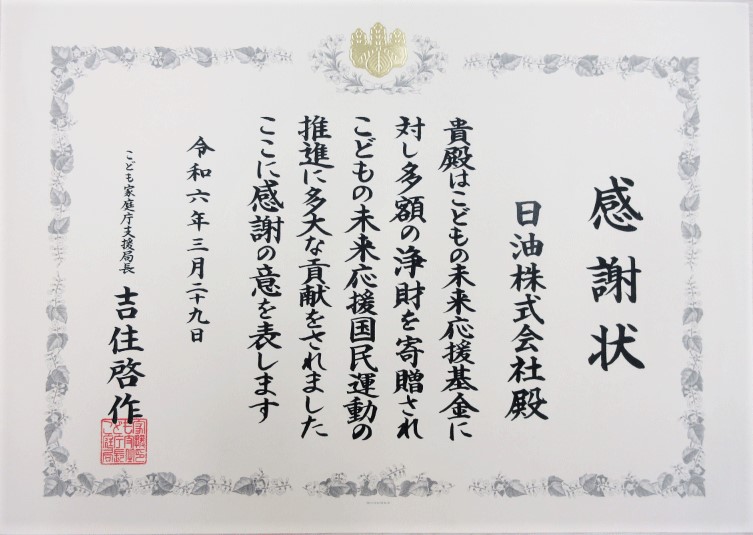 感謝状
日油株式会社殿
貴殿はこどもの未来応援基金に
対し多額の浄財を寄贈され
こどもの未来応援国民運動の
推進に多大な貢献をされました
ここに感謝の意を表します
令和六年三月二十九日
こども家庭庁支援局長 吉住啓作